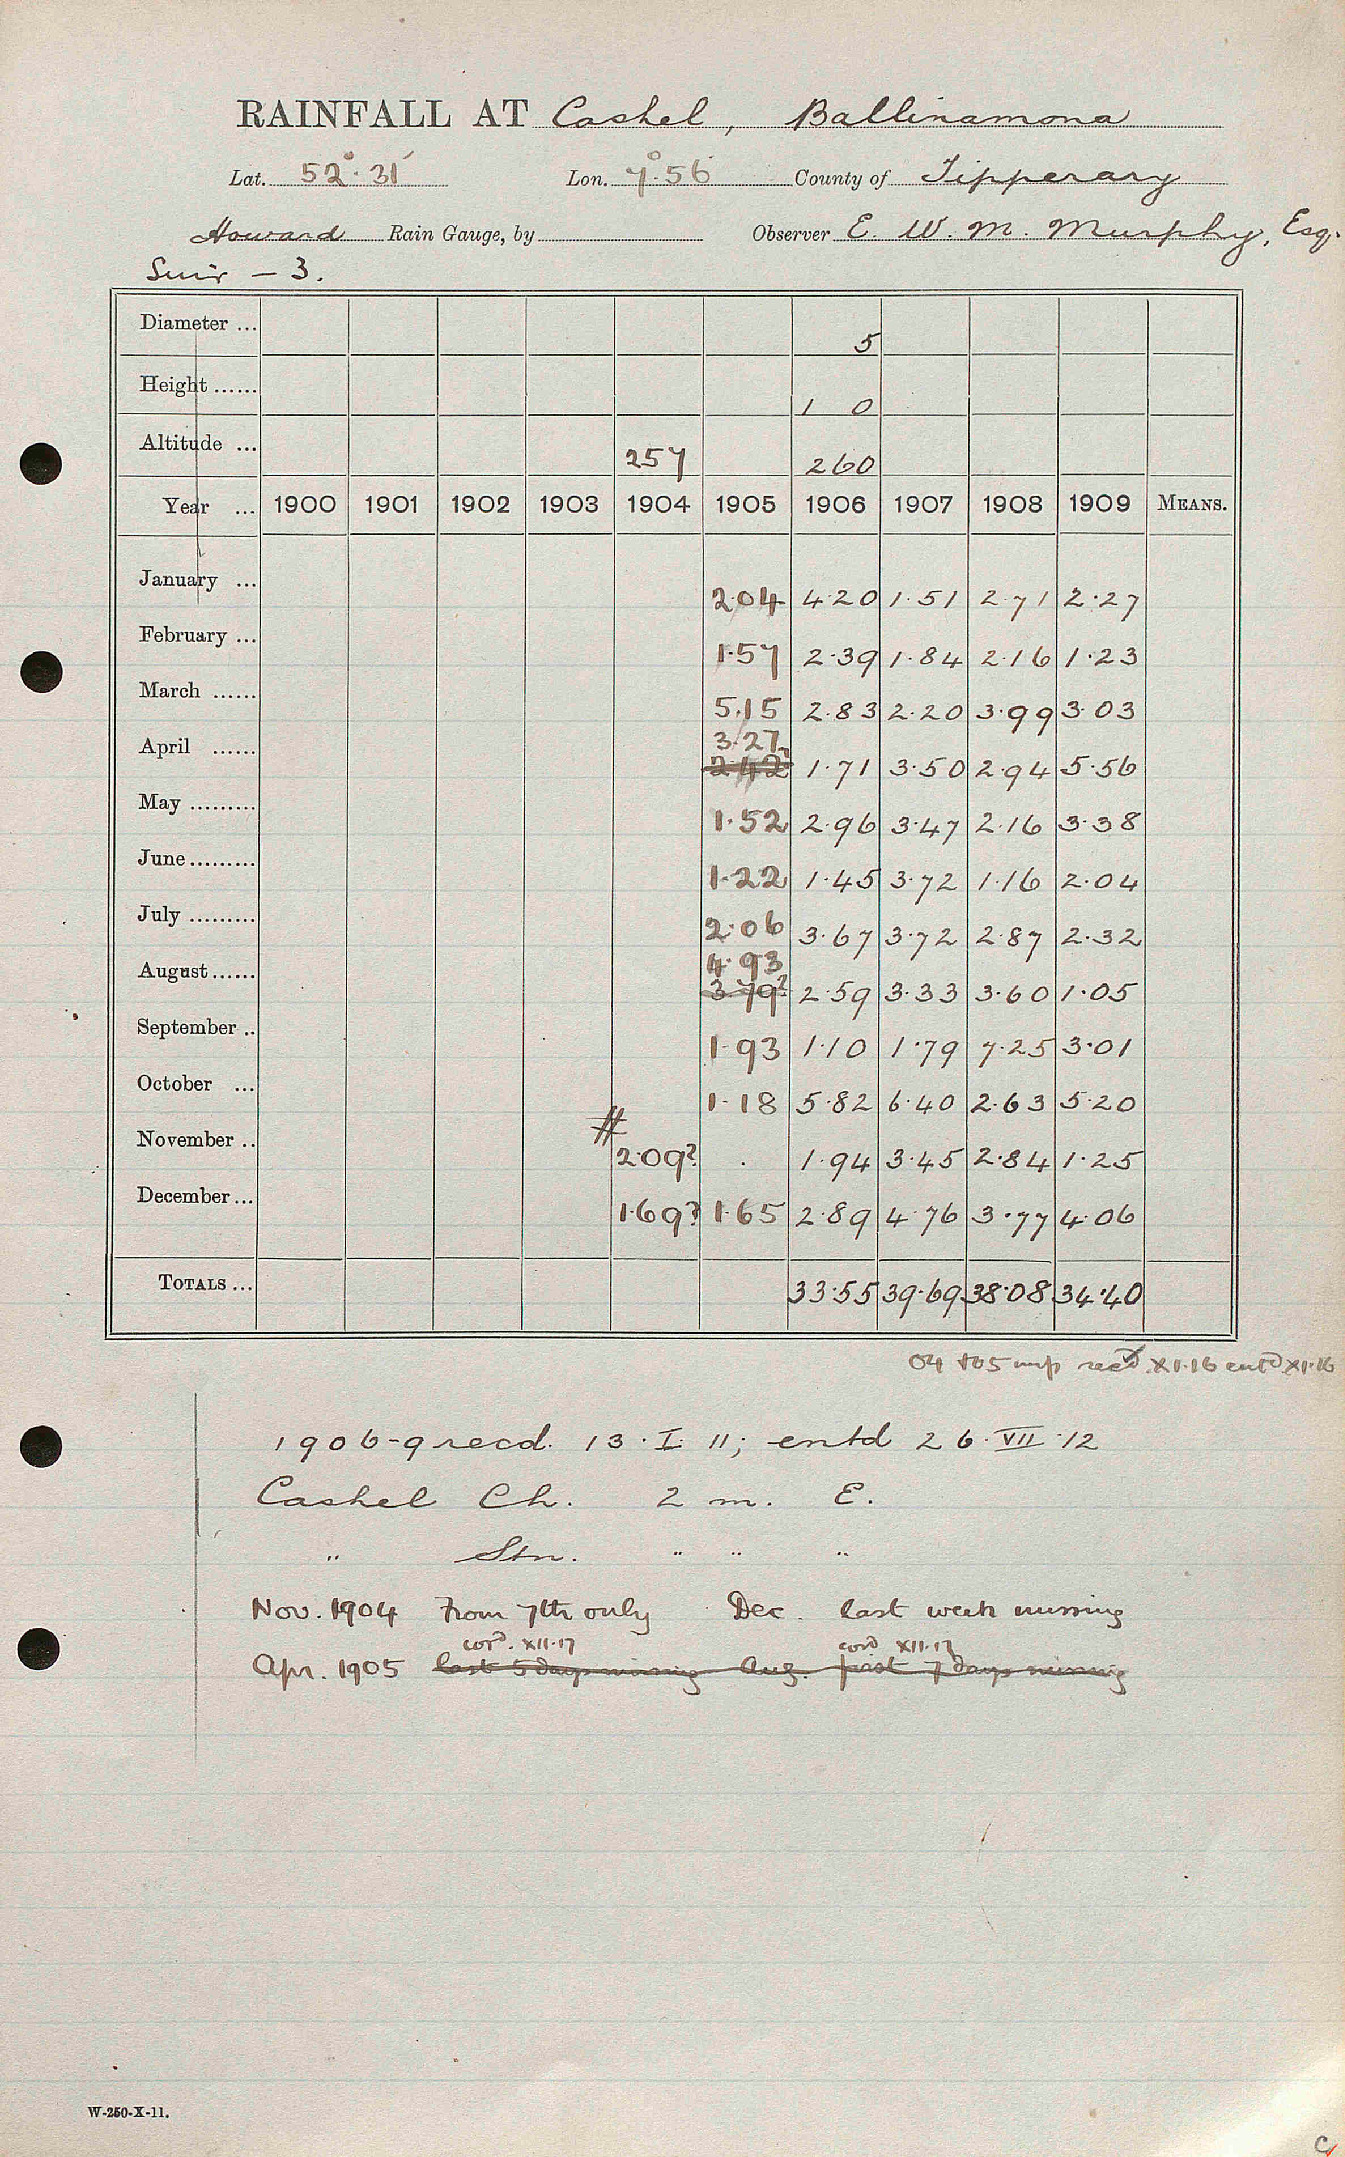 RAINFALL AT Cashel, Ballinamona
Lat. 52°·31′ Lon. 7°·56′ County of Tipperary
Howard Rain Gauge, by Observer E. W. M. Murphy, Esq.
Suir – 3.
Diameter ... 5
Height ...... 1 0
Altitude ... 257 260
Year ... 1900 1901 1902 1903 1904 1905 1906 1907 1908 1909 MEANS.
January ... 2·04 4·20 1·51 2·71 2·27
February ... 1·57 2·39 1·84 2·16 1·23
March ...... 5·15 2·83 2·20 3·99 3·03
3·27
April ...... 2·42? 1·71 3·50 2·94 5·56
May ......... 1·52 2·96 3·47 2·16 3·38
June ......... 1·22 1·45 3·72 1·16 2·04
July ......... 2·06 3·67 3·72 2·87 2·32
4·93
August ...... 3·79? 2·59 3·33 3·60 1·05
September .. 1·93 1·10 1·79 7·25 3·01
October ... 1·18 5·82 6·40 2·63 5·20
#
November .. 2·09? . 1·94 3·45 2·84 1·25
December ... 1·69? 1·65 2·89 4·76 3·77 4·06
TOTALS ... 33·55 39·69 38·08 34·40
04 + 05 recd XI·16 entd XI·16
1906-9 recd. 13·I·11; entd 26·VII·12
Cashel Ch. 2 m. E.
" Stn. " " "
Nov. 1904 From 7th only Dec. last week missing
cord. XII·17 cord XII·17
Apr. 1905 last 5 days missing Aug. first 7 days missing
W-250-X-11.
C